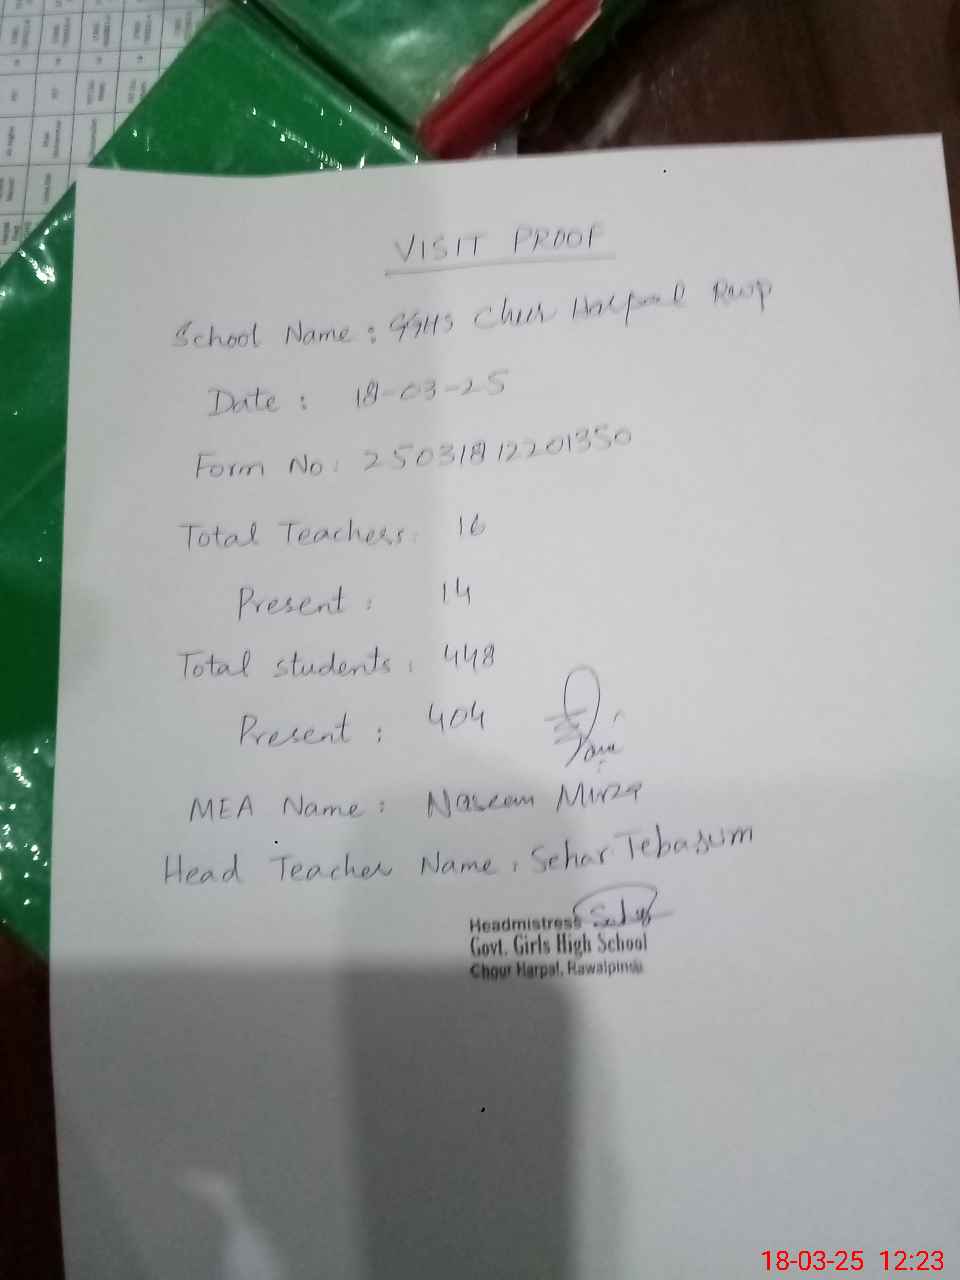 VISIT PROOF
School Name: GGHS Chur Harpal Rwp
Date: 18-03-25
Form No: 25031812201350
Total Teachers: 16
Present: 14
Total students: 448
Present: 404
MEA Name: Naseem Mirza
Head Teacher Name: Sehar Tebasum
Headmistress
Govt. Girls High School
Chour Harpal, Rawalpindi
18-03-25 12:23